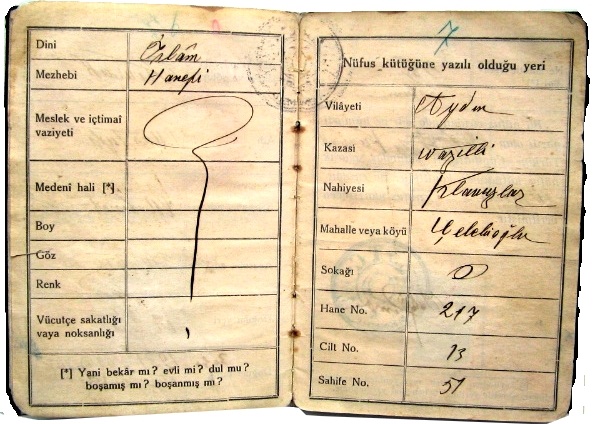 Dini İslâm
Mezhebi Hanefi
Meslek ve içtimaî
vaziyeti
Medenî hali [*]
Boy
Göz
Renk
Vücutçe sakatlığı
vaya noksanlığı
[*] Yani bekâr mı? evli mi? dul mu?
boşamış mı? boşanmış mı?
7
Nüfus kütüğüne yazılı olduğu yeri
Vilâyeti Aydın
Kazası Nazilli
Nahiyesi
Mahalle veya köyü
Sokağı 0
Hane No. 217
Cilt No. 13
Sahife No. 51